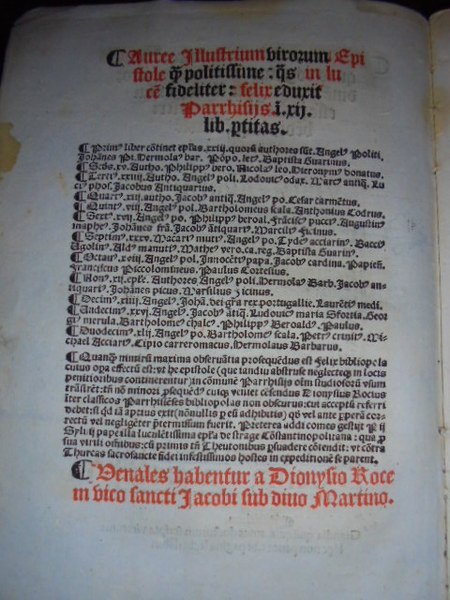 ¶ Auree Illustrium virorum Epi
stole q̃ politissime: q̃s in lu
cē fideliter: felix eduxit
Parrhisijs ī. xij.
lib. ꝑtitas.
¶ Primꝰ liber cōtinet epl̄as .xxiij. quorū authores sūt. Angelꝰ Politi.
Johānes Pi. Hermola⁹ bar. Pōpo. letꝰ. Baptista Guarinus.
¶ Scd̄s .xv. Autho. Philippꝰ bero. Nicolaꝰ leo. Hieronymꝰ donatus.
¶ Terciꝰ .xxij. autho. Angelꝰ poli. Lodouicꝰ odax. Marcꝰ antiq̄. Lu
ciꝰ phos. Jacobus Antiquarius.
¶ Quartꝰ .xij. autho. Jacobꝰ antiq̄. Angelꝰ po. Cesar carmētus.
¶ Quintꝰ .viij. Angelꝰ pol. Bartholomeus scala. Anthonius Codrus.
¶ Sextꝰ .xvij. Angelꝰ po. Philippꝰ beroal. Frāciscꝰ pucciꝰ. Augustinꝰ
maphe⁹. Johānes frā. Jacobꝰ ātiquarꝰ. Marcilꝰ Ficinus.
¶ Septimꝰ .xxxv. Macariꝰ mutiꝰ. Angelꝰ po. Tydeꝰ acciarin⁹. Bacciꝰ
Ugolinꝰ. Aldꝰ manutꝰ. Matheꝰ vero. ca. reg. Baptista Guarin.
¶ Octauꝰ .xviij. Angelꝰ pol. Innocētꝰ papa. Jacobꝰ cardina. Papieñ.
Franciscus Piccolomineus. Paulus Cortesius.
¶ Nonꝰ .xij. epl̄e. Authores Angelꝰ poli. Hermolaꝰ Barb. Jacobꝰ an-
tiquariꝰ. Johānes picus. Marsilius ficinus.
¶ Decimꝰ .xiiij. Angelꝰ. Johā. dei gr̄a rex portugallie. Laurētiꝰ medi.
¶ Undecimꝰ .xxvi. Angelꝰ. Jacobꝰ ātiq̄. Ludouicꝰ maria Sfortia. Geor
giꝰ merula. Bartholomeꝰ chalcꝰ. Philippꝰ Beroald⁹. Paulus.
¶ Duodecimꝰ .xlij. Angelꝰ po. Bartholomeꝰ scala. Petrꝰ crinitꝰ. Mi
chael Acciariꝰ. Scipio carteromacus. Hermolaus Barbarus.
¶ Quanq̄ nimirū maxima obseruātia prosequēdus est Felix bibliopola
cuius opa effectū est: vt he epistole (que tandiu abstruse neglecteq̄ in locis
penitioribus continerentur) in cōmune Parrhisijs olīm studiosorū vsum
trāsirēt: tn̄ nō minori p̄sequēdꝰ cuiq̄ veniet cēsendus Dionysius Roce
inter classicos Parrhisiēses bibliopolas non obscurus: cui acceptū referri
debet: si q̄d iā aptius exit (nōnullis p̄ eū adhibitis) q̄ vel ante ꝑperā cor-
rectū vel negligēter p̄termissum fuerit. Preterea addi comes gestijt Pij
Syluij papę illa luculētissima epl̄a de strage Cōstantinopolitana: qua ꝓ
sua virili omnibꝰ: cū primis tn̄ Theutonibus p̄suadere cōtendit: vt cōtra
Thurcas sacrosancte fidei infestissimos hostes in expeditionē se parent.
¶ Venales habentur a Dionysio Roce
in vico sancti Jacobi sub diuo Martino.